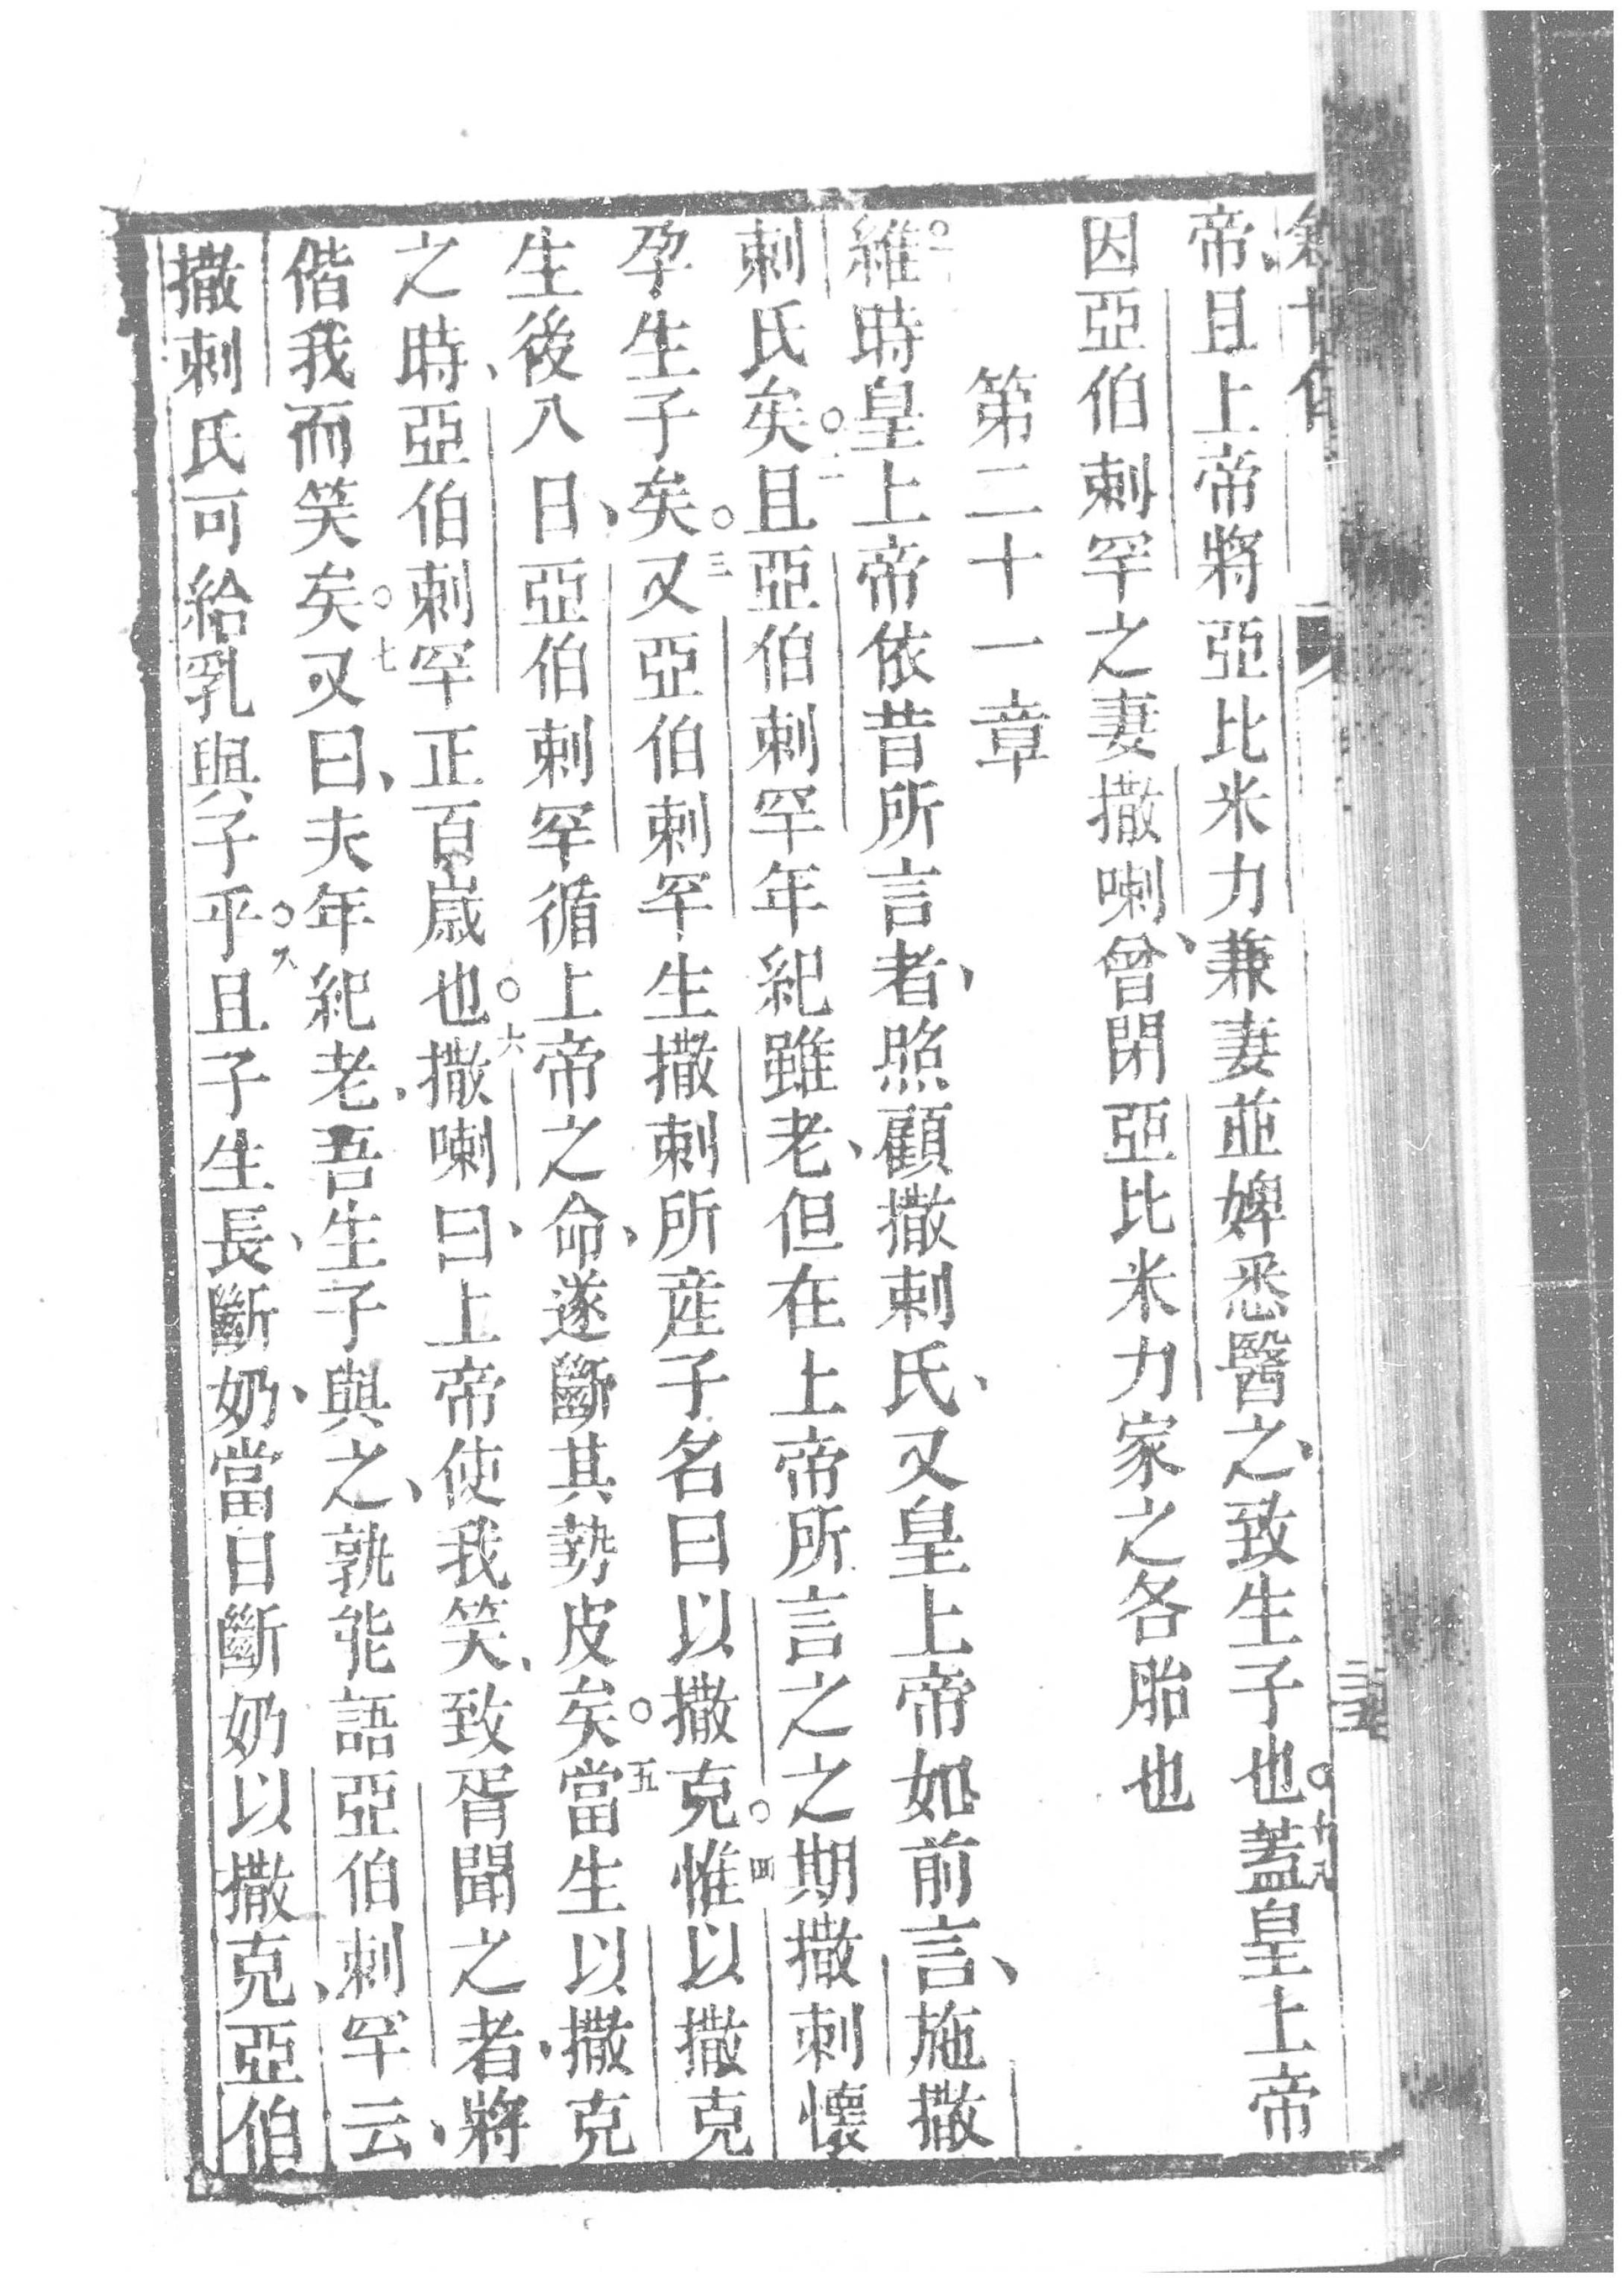 帝、且上帝將亞比米力兼妻並婢悉醫之、致生子也。十八蓋皇上帝
因亞伯剌罕之妻撒喇、曾閉亞比米力家之各胎也
第二十一章
○一維時皇上帝依昔所言者、照顧撒剌氏、又皇上帝如前言、施撒
剌氏矣○二且亞伯剌罕年紀雖老、但在上帝所言之之期撒剌懷
孕生子矣○三又亞伯剌罕生撒剌所產子名曰以撒克○四惟以撒克
生後八日、亞伯剌罕循上帝之命、遂斷其勢皮矣○五當生以撒克
之時、亞伯剌罕正百歲也○六撒喇曰、上帝使我笑、致胥聞之者、將
偕我而笑矣○七又曰、夫年紀老、吾生子與之、孰能語亞伯剌罕云、
撒剌氏可給乳與子乎○八且子生長、斷奶、當日斷奶以撒克、亞伯